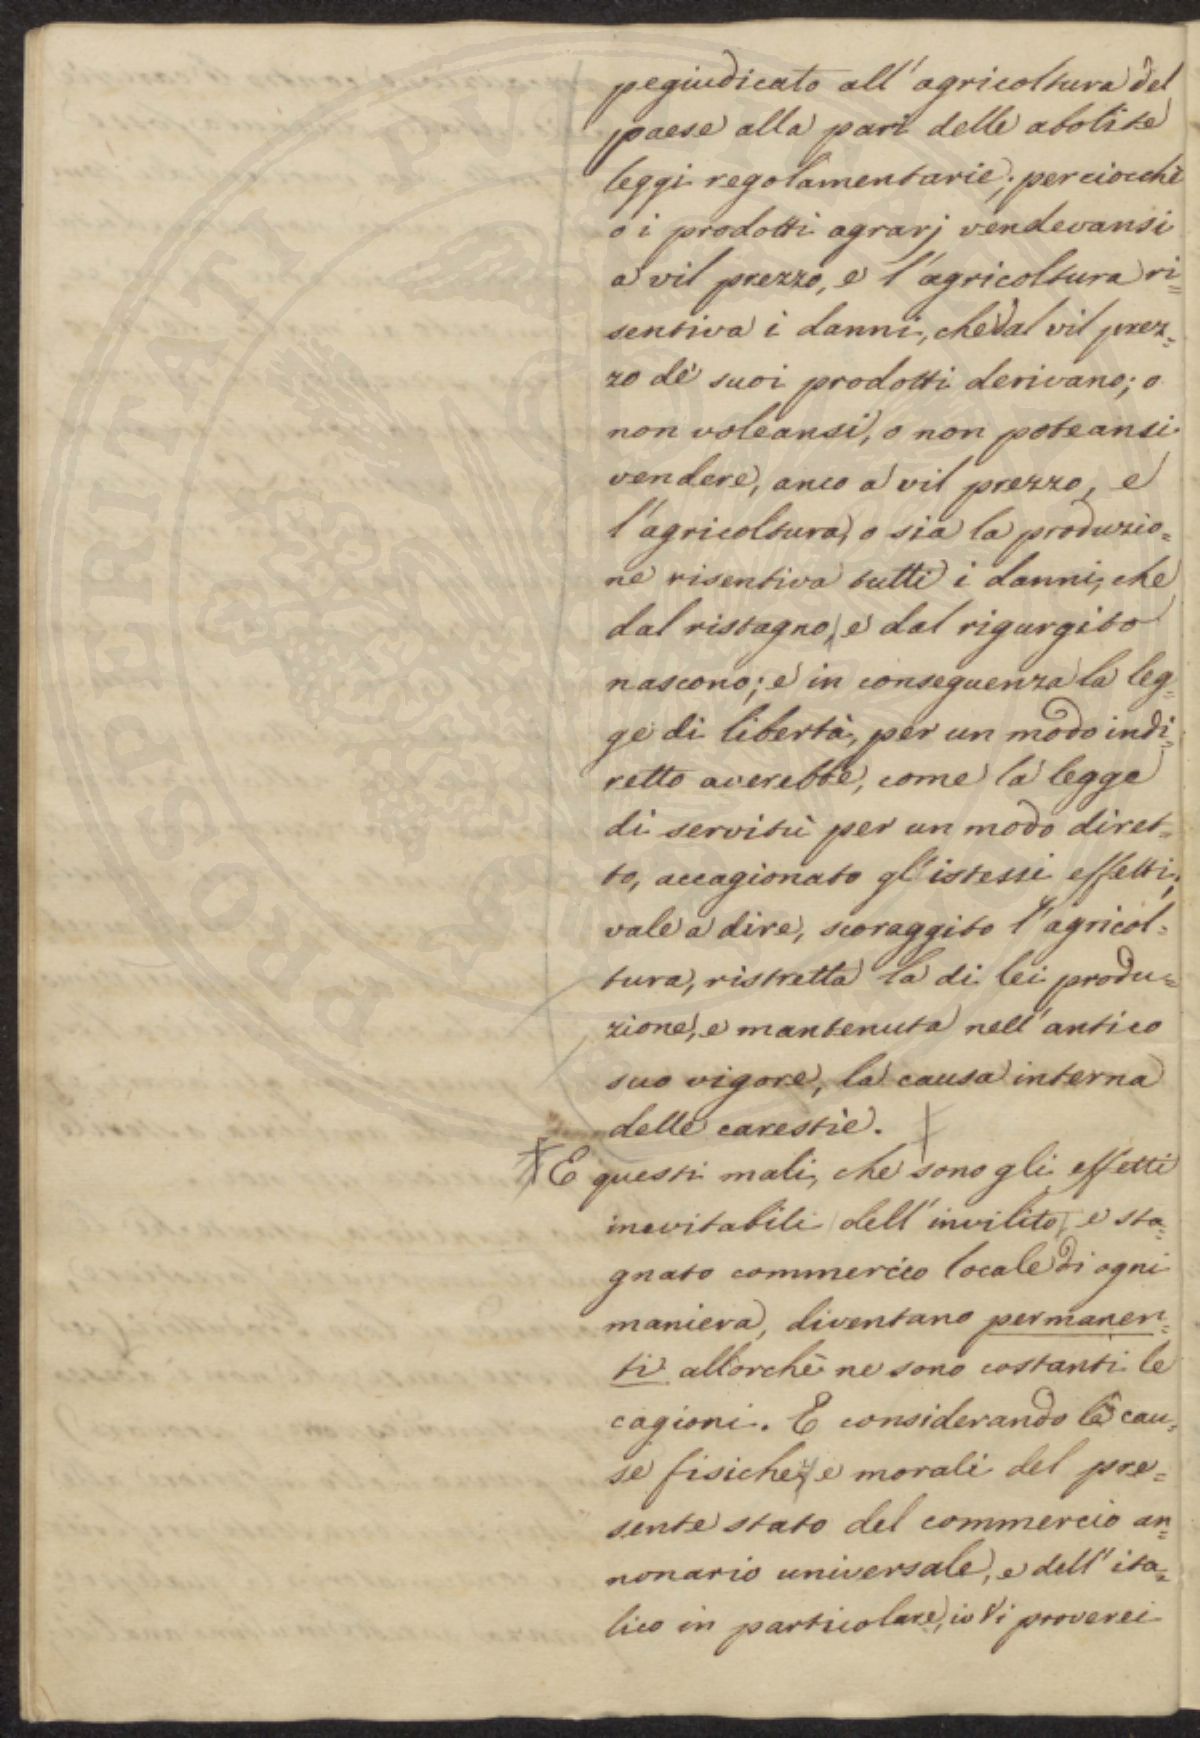 pegiudicato all'agricoltura del
paese alla pari delle abolite
leggi regolamentarie; perciocchè
o i prodotti agrarj vendevansi
a vil prezzo, e l'agricoltura ri=
sentiva i danni, che dal vil prez=
zo de' suoi prodotti derivano; o
non voleansi, o non poteansi
vendere, anco a vil prezzo, e
l'agricoltura, o sia la produzio=
ne risentiva tutti i danni, che
dal ristagno, e dal rigurgito
nascono; e in conseguenza la leg=
ge di libertà, per un modo indi=
retto averebbe, come la legge
di servitù per un modo diret=
to, accagionato gl'istessi effetti,
vale a dire, scoraggito l'agricol=
tura, ristretta la di lei produ=
zione, e mantenuta nell'antico
suo vigore, la causa interna
delle carestie.
E questi mali, che sono gli effetti
inevitabili dell'invilito, e sta=
gnato commercio locale di ogni
maniera, diventano permanen=
ti allorchè ne sono costanti le
cagioni. E considerando le cau=
se fisiche, e morali del pre=
sente stato del commercio an=
nonario universale, e dell'ita=
lico in particolare, io vi proverei
PROSPERITATI PVBLICAE